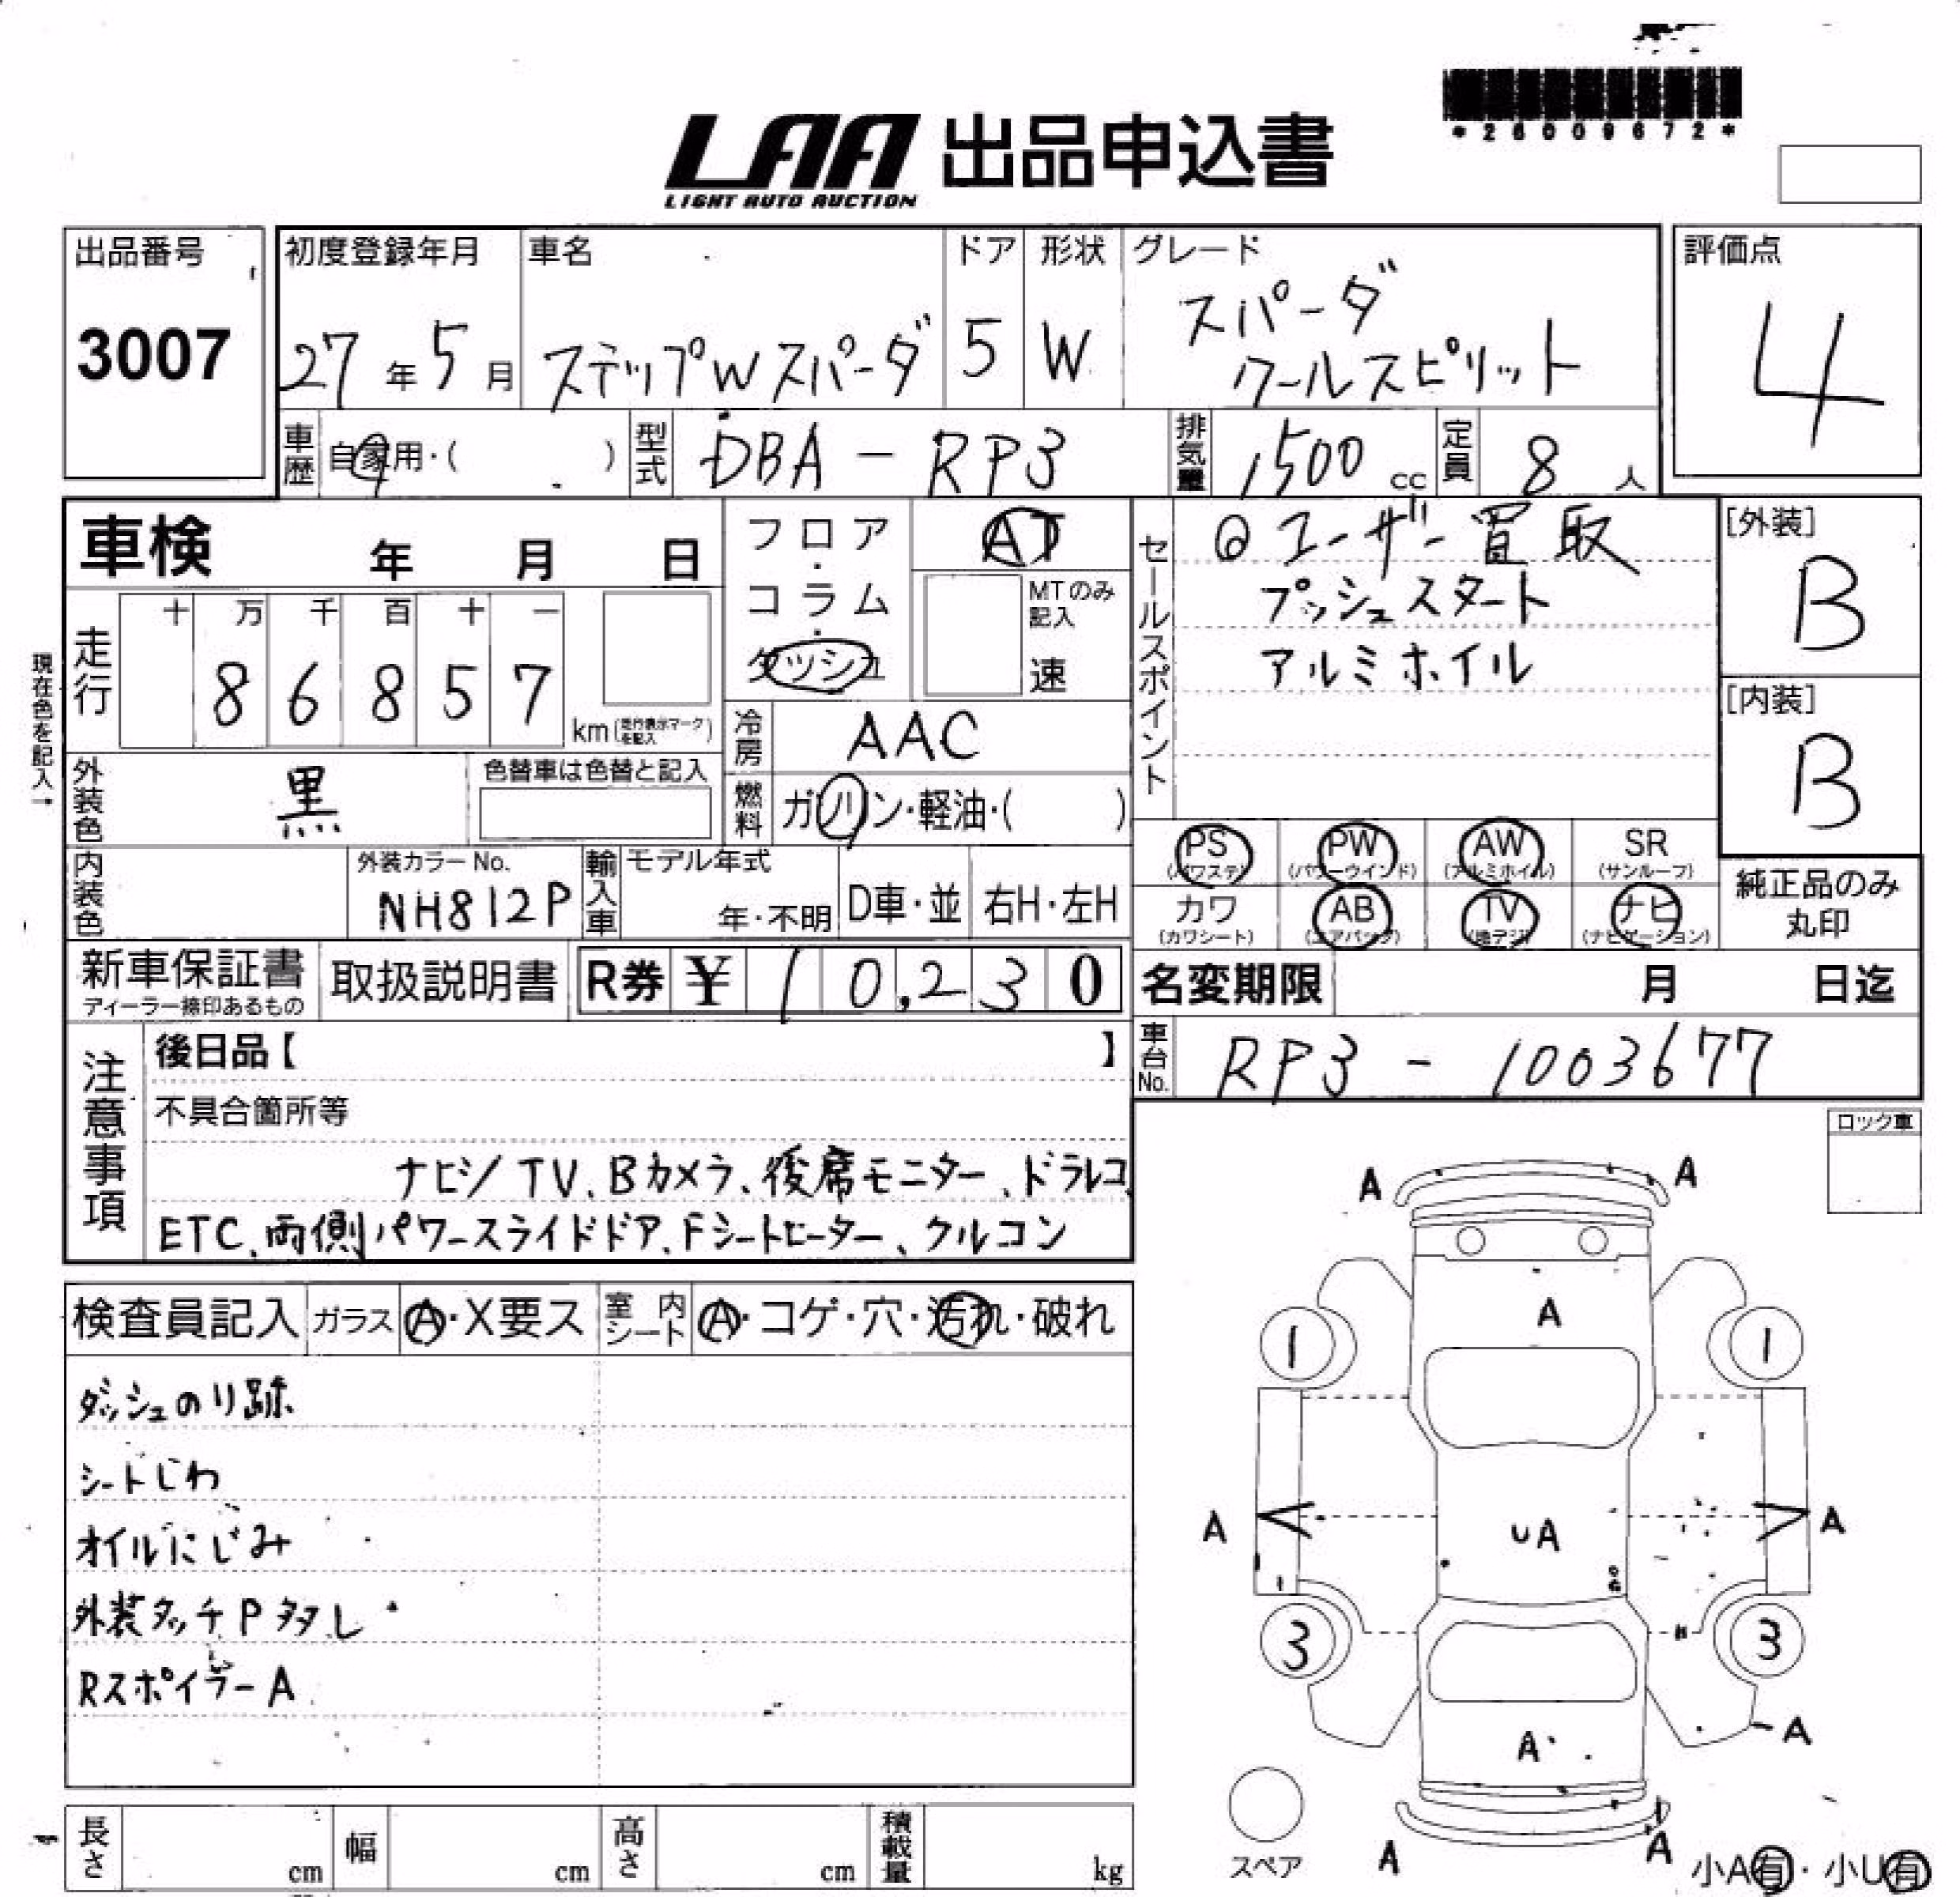 *26009672*
LAA 出品申込書
LIGHT AUTO AUCTION
出品番号
3007
初度登録年月
27年5月
車名
ステップWスパーダ
ドア
5
形状
W
グレード
スパーダ
クールスピリット
評価点
4
車歴 自家用・( )
型式 DBA-RP3
排気量 1500cc
定員 8人
車検 年 月 日
現在色を記入→
走行
十 万 千 百 十 一
8 6 8 5 7
km(走行表示マークを記入)
フロア・コラム・ダッシュ
AT
MTのみ記入
速
冷房 AAC
燃料 ガソリン・軽油・( )
外装色 黒
色替車は色替と記入
内装色
外装カラーNo.
NH812P
輸入車
モデル年式
年・不明
D車・並
右H・左H
セールスポイント
ユーザー買取
プッシュスタート
アルミホイル
[外装]
B
[内装]
B
PS (パワステ)
PW (パワーウインド)
AW (アルミホイル)
SR (サンルーフ)
カワ (カワシート)
AB (エアバック)
TV (地デジ)
ナビ (ナビゲーション)
純正品のみ
丸印
新車保証書
ディーラー捺印あるもの
取扱説明書
R券 ¥10,230
名変期限 月 日迄
車台No. RP3-1003677
注意事項
後日品【 】
不具合箇所等
ナビ/TV、Bカメラ、後席モニター、ドラレコ、
ETC、両側パワースライドドア、Fシートヒーター、クルコン
ロック車
検査員記入
ガラス A・X要ス
室内シート A・コゲ・穴・汚れ・破れ
ダッシュのり跡
シートじわ
オイルにじみ
外装タッチP タタレ
RスポイラーA
A A
A
1 1
A A
UA
3 3
A
A
A A
スペア
小A有・小U有
長さ cm
幅 cm
高さ cm
積載量 kg